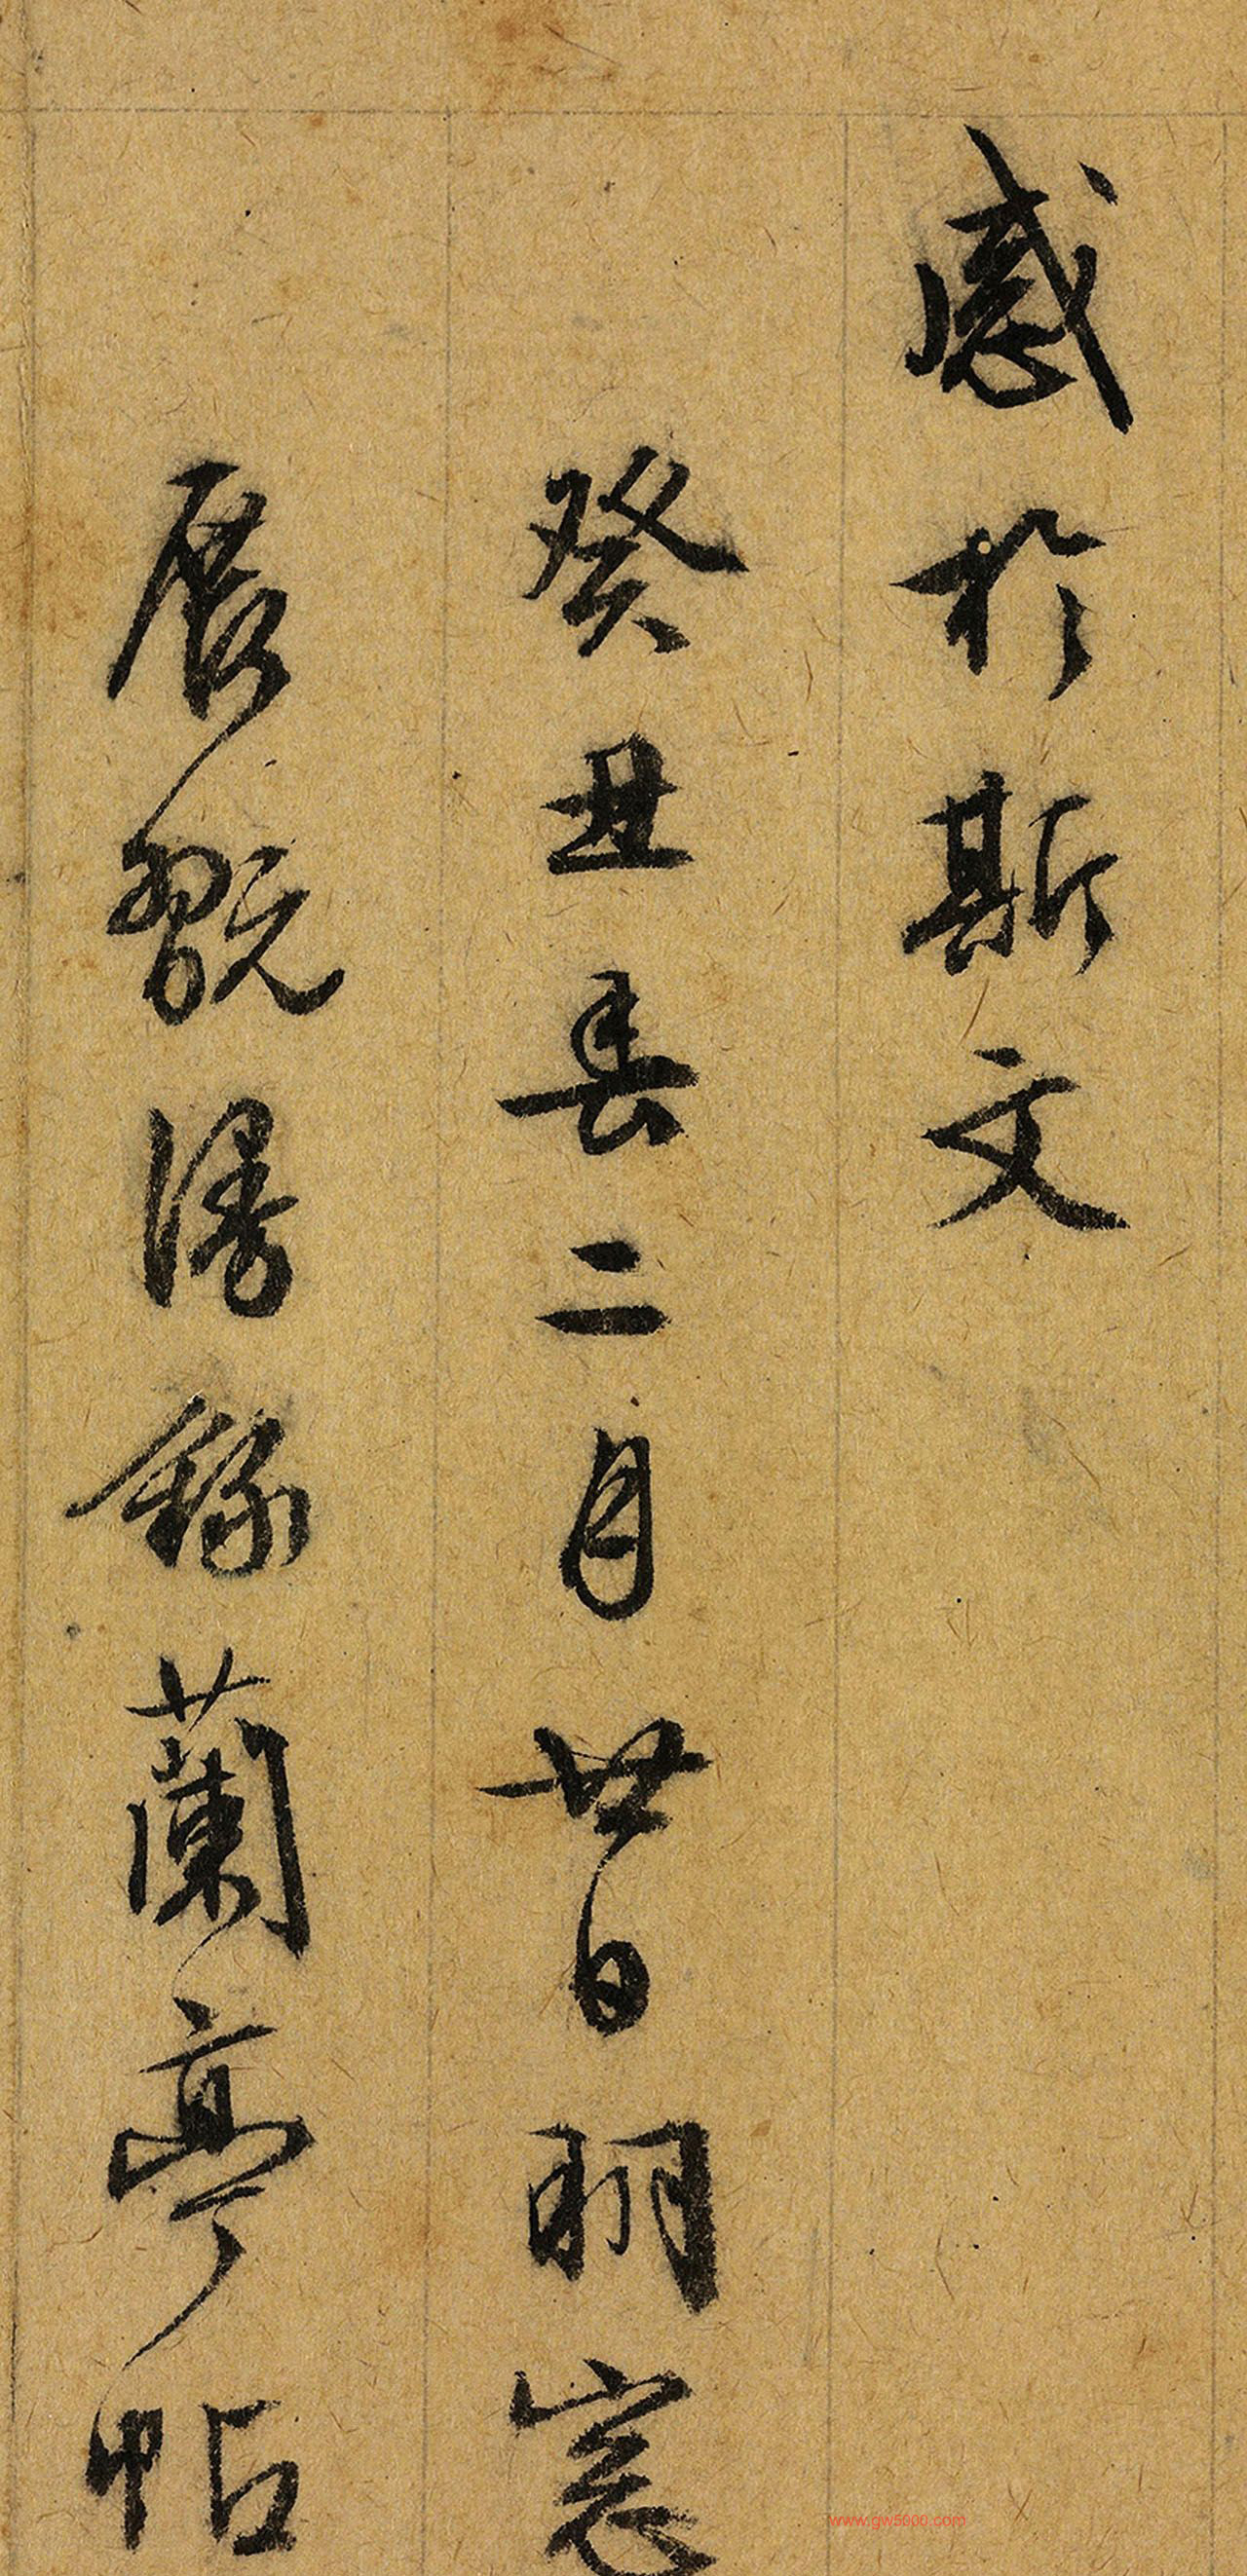 感於斯文
癸丑春二月廿日明窓
展翫漫錄蘭亭帖
www.gw5000.com